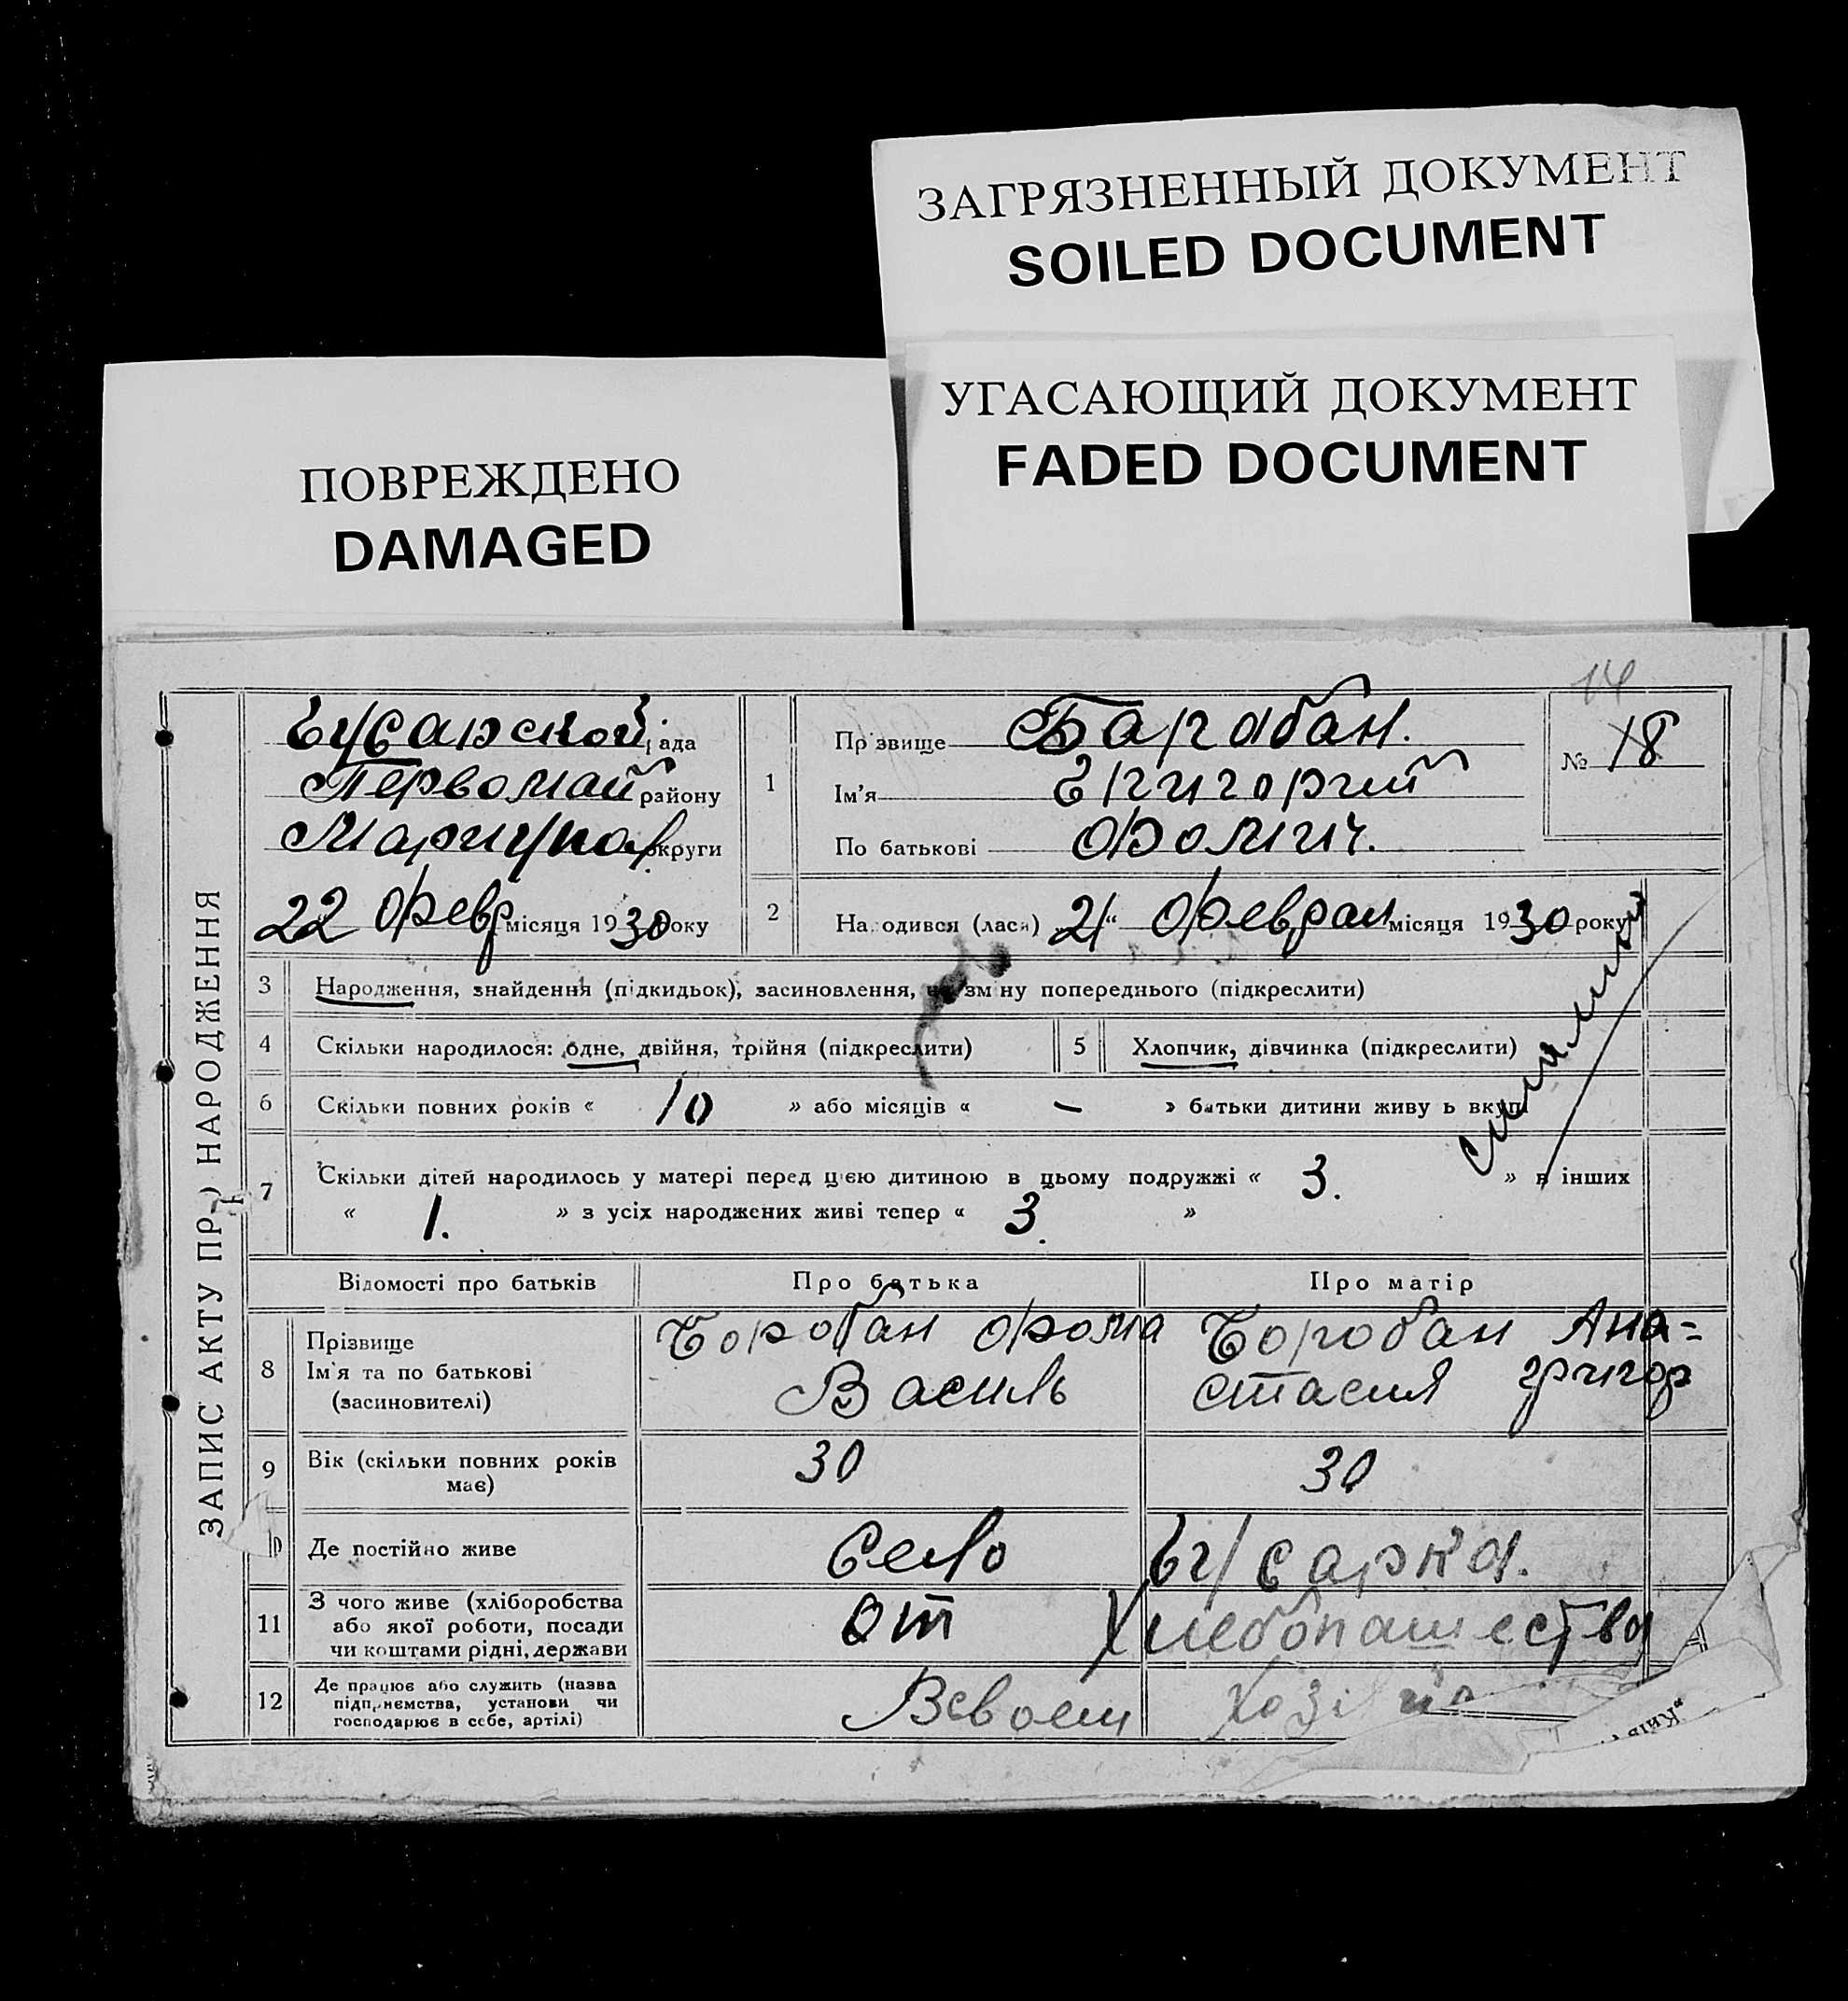 ЗАГРЯЗНЕННЫЙ ДОКУМЕНТ
SOILED DOCUMENT
УГАСАЮЩИЙ ДОКУМЕНТ
FADED DOCUMENT
ПОВРЕЖДЕНО
DAMAGED
14
ЗАПИС АКТУ ПР НАРОДЖЕННЯ
рада
Первомай району
Мариупол округи
22 Февр місяця 1930 року
1
Прізвище Барабан.
Ім'я Григорий
По батькові Фомич.
№ 18
2
На одився (лася) 21 " Феврал місяця 1930 року
3 Народження, знайдення (підкидьок), засиновлення, зм ну попереднього (підкреслити)
4 Скільки народилося: одне, двійня, трійня (підкреслити)
5 Хлопчик, дівчинка (підкреслити)
6 Скільки повних років « 10 » або місяців « — » батьки дитини живу ь вкупі
7 Скільки дітей народилось у матері перед цією дитиною в цьому подружжі « 3. » в інших
« 1. » з усіх народжених живі тепер « 3. »
Відомості про батьків
Про батька
Про матір
8 Прізвище
Ім'я та по батькові
(засиновителі)
Боробан Фома
Василь
Боробан Ана=
стасия Григор
9 Вік (скільки повних років
має)
30
30
Де постійно живе
Село
11 З чого живе (хліборобства
або якої роботи, посади
чи коштами рідні, держави
От Хлебопашества
12 Де працює або служить (назва
підприємства, установи чи
господарює в себе, артілі)
Всвоем
"Київ